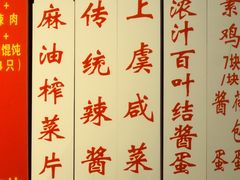 辣肉
+
馄饨
只）
麻油榨菜片
传统辣酱
上虞咸菜
浓汁百叶结酱蛋
素鸡
7块
1块
包蛋